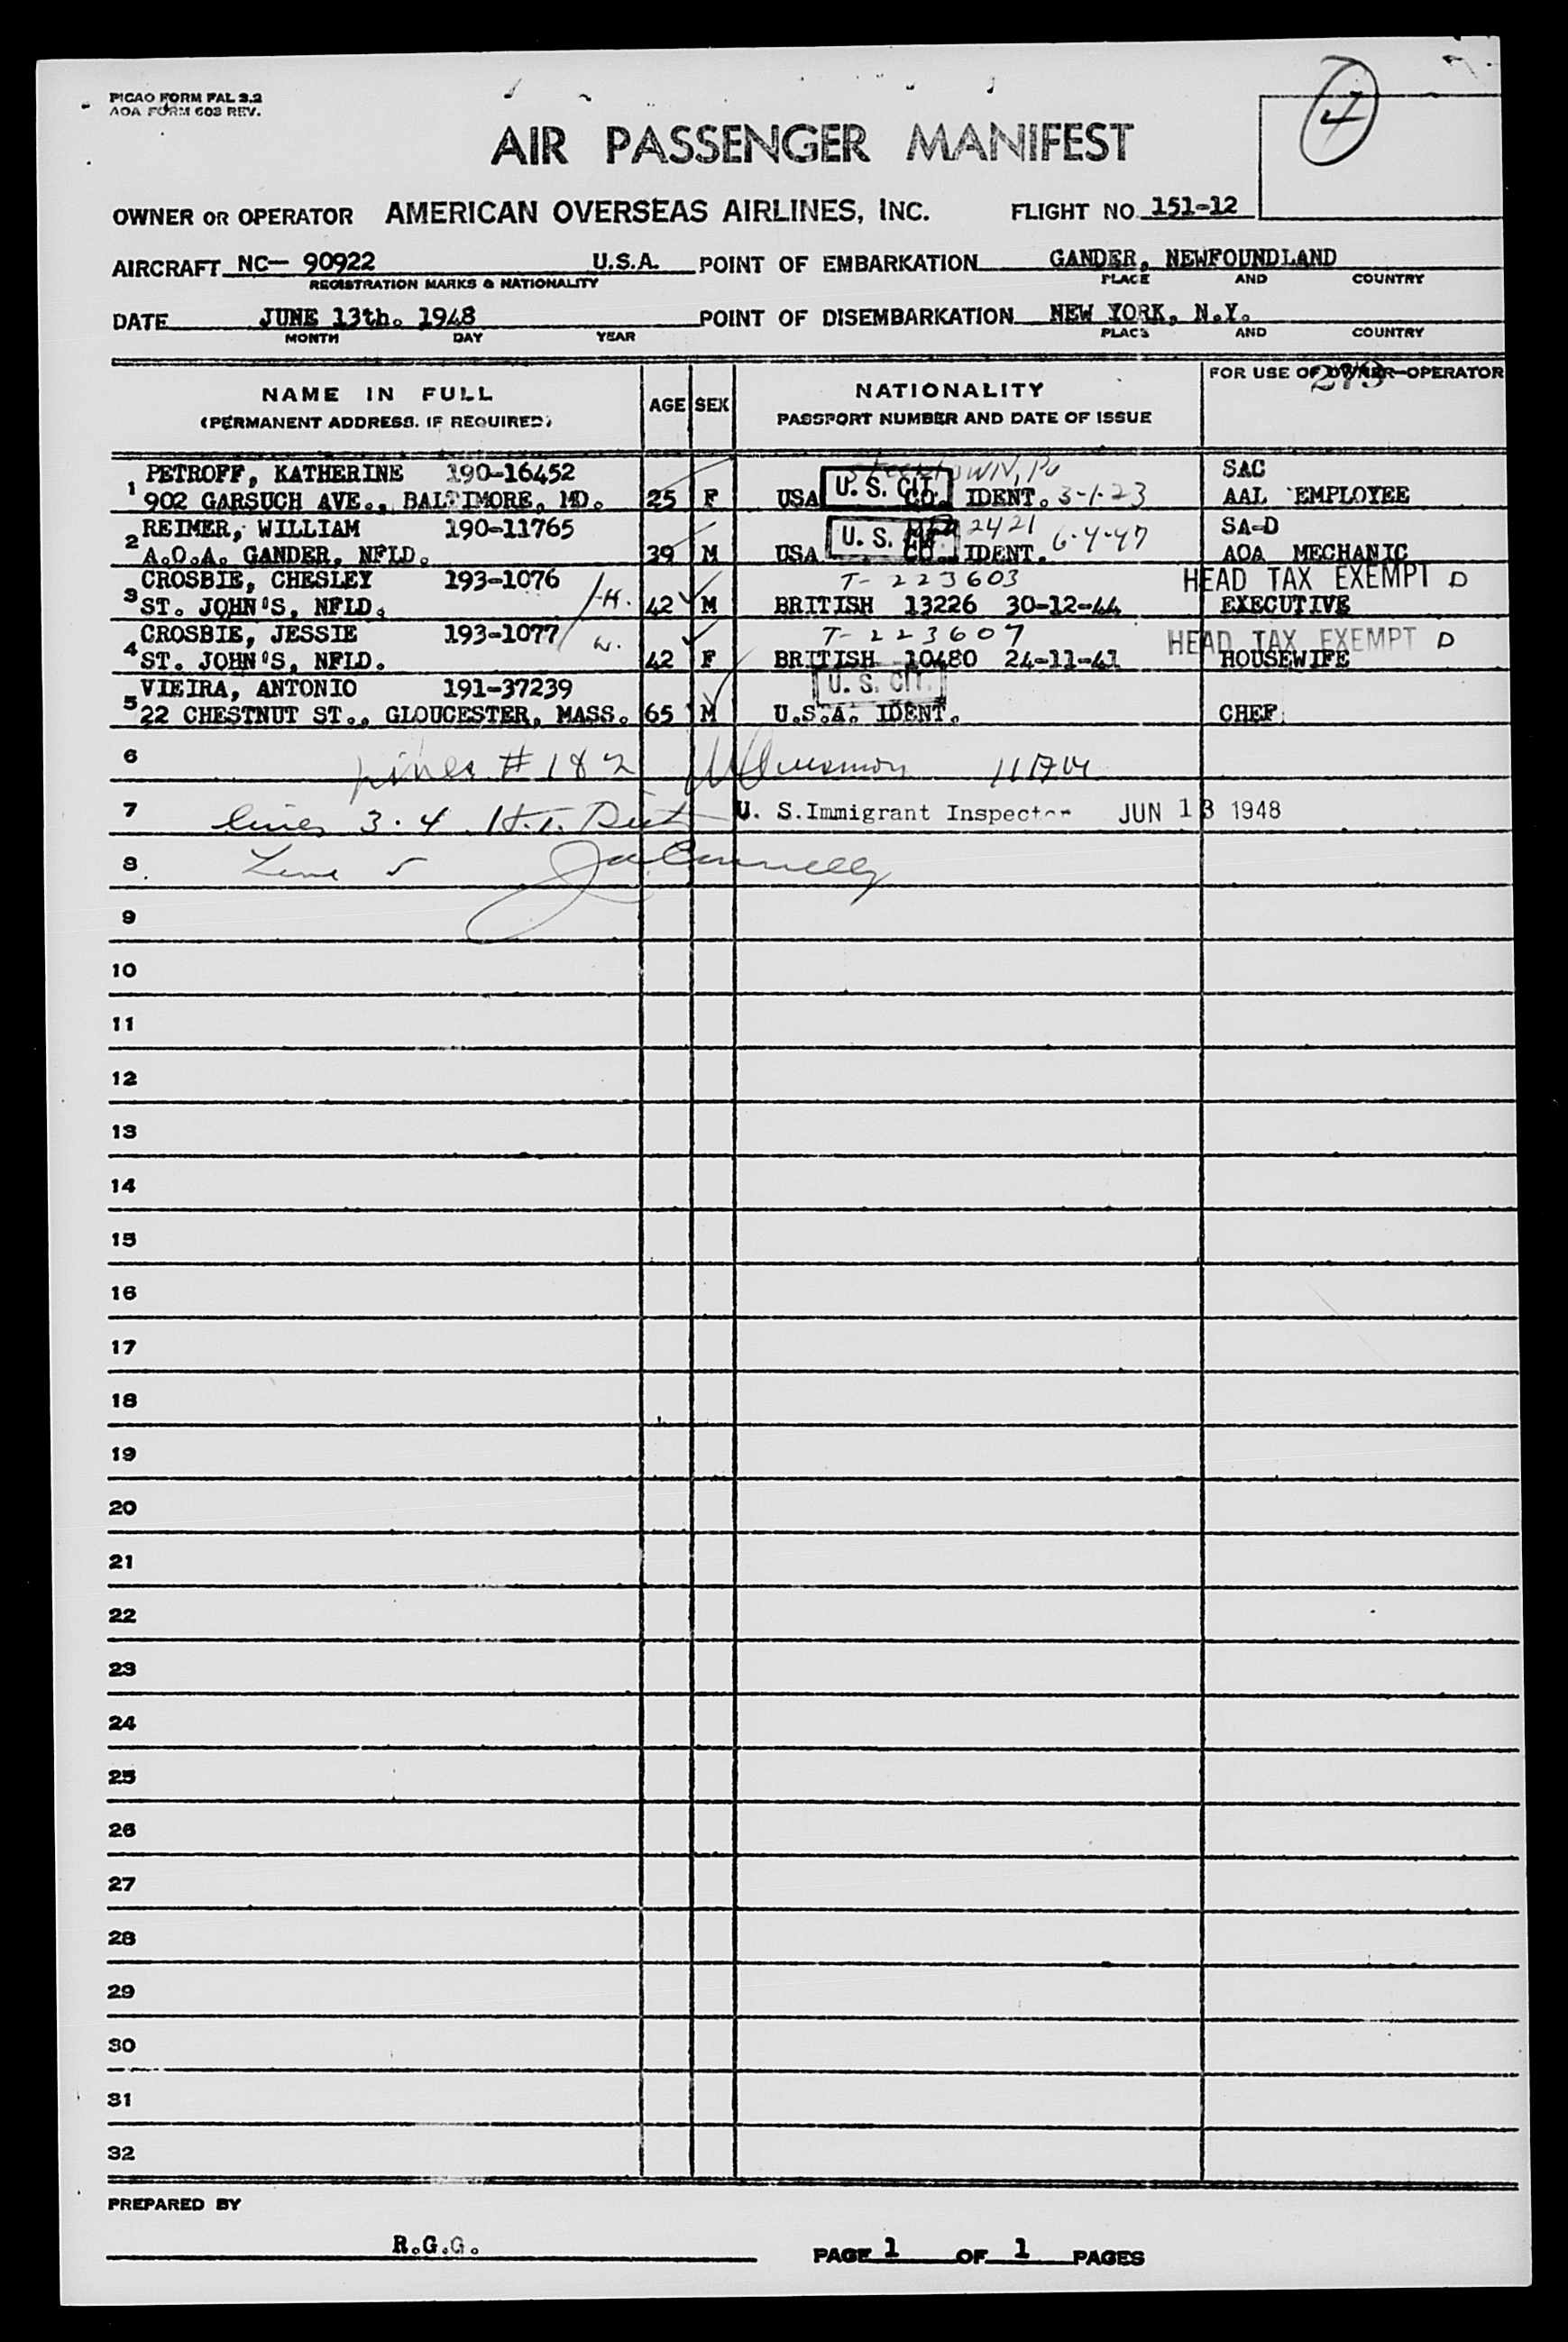 PICAO FORM FAL 2.2
AOA FORM 603 REV.
4
AIR PASSENGER MANIFEST
OWNER OR OPERATOR AMERICAN OVERSEAS AIRLINES, INC. FLIGHT NO. 151-12
AIRCRAFT NC- 90922 U.S.A. POINT OF EMBARKATION GANDER, NEWFOUNDLAND
REGISTRATION MARKS & NATIONALITY PLACE AND COUNTRY
DATE JUNE 13th. 1948 POINT OF DISEMBARKATION NEW YORK, N.Y.
MONTH DAY YEAR PLACE AND COUNTRY
NAME IN FULL
(PERMANENT ADDRESS. IF REQUIRED)
AGE SEX
NATIONALITY
PASSPORT NUMBER AND DATE OF ISSUE
FOR USE OF OWNER-OPERATOR
273
1 PETROFF, KATHERINE 190-16452 SAC
902 GARSUCH AVE., BALTIMORE, MD. 25 F USA U. S. CIT. CO. IDENT. 3-1-23 AAL EMPLOYEE
2 REIMER, WILLIAM 190-11765 2421 6-4-47 SA-D
A.O.A. GANDER, NFLD. 39 M USA U. S. CO. IDENT. AOA MECHANIC
3 CROSBIE, CHESLEY 193-1076 H. T-223603 HEAD TAX EXEMPT D
ST. JOHN'S, NFLD. 42 M BRITISH 13226 30-12-44 EXECUTIVE
4 CROSBIE, JESSIE 193-1077 W. T-223607 HEAD TAX EXEMPT D
ST. JOHN'S, NFLD. 42 F BRITISH 10480 24-11-41 HOUSEWIFE
5 VIEIRA, ANTONIO 191-37239 U. S. CIT.
22 CHESTNUT ST., GLOUCESTER, MASS. 65 M U.S.A. IDENT. CHEF
6 Lines # 1 & 2
7 lines 3 · 4 H.T. U. S. Immigrant Inspector JUN 13 1948
8 Line 5
9
10
11
12
13
14
15
16
17
18
19
20
21
22
23
24
25
26
27
28
29
30
31
32
PREPARED BY
R.G.G.
PAGE 1 OF 1 PAGES